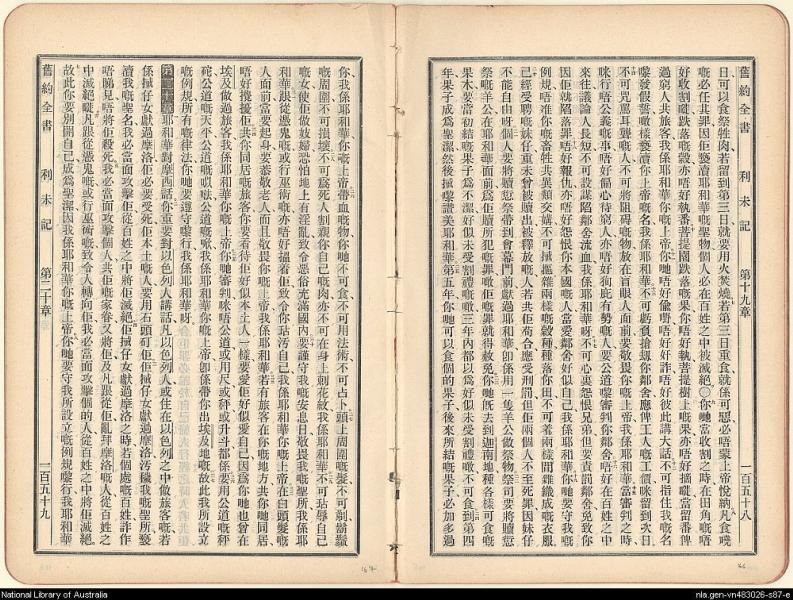 舊約全書 利未記 第十九章 一百五十八
日可以食祭牲肉若留到第三日就要用火焚燒若第三日重食就係可惡必唔蒙上帝悅納凡食嘅
嘅必任其罪因佢褻瀆耶和華嘅聖物個人必在百姓之中被滅絕〇你哋當收割之時在田角嘅唔
好收割嘅跌落嘅穀亦唔好執番菩提園跌落嘅果你唔好執菩提樹上嘅果亦唔好摘嘅當留番俾
過窮人共旅客我係耶和華你嘅上帝你哋唔好偷嘢唔好詐唔好彼此講大話不可指住我嘅名
嚟發假誓噉樣褻瀆你上帝嘅名我係耶和華不可欺負搶掠你鄰舍應俾工人嘅工價咪留到次日
不可咒罵耳聾嘅人不可將阻碍嘅物放在盲眼人面前要敬畏你上帝我係耶和華當審判之時
咪行唔公義嘅事唔好偏心待窮人亦唔好狥庇有勢嘅人要公道嚟審判你鄰舍唔好在百姓之中
來往議論人長短不可設謀陷鄰舍流血我係耶和華呀不可心裏怨恨兄弟但要責罰鄰舍免致你
因佢就陷落罪唔好報仇亦唔好怨恨你本國嘅人當愛鄰舍好似自己我係耶和華你哋要守我嘅
例規唔准你嘅畜牲共異類交媾不可攙摳兩樣嘅穀種種落你田不可着兩樣間雜織成嘅衣服
已經受聘嘅妹仔重未曾被贖出被釋放嘅人若共佢苟合應受刑罰但佢兩個人不至死罪因妹仔
不能自由呀個人要將贖愆祭帶到會幕門前獻過耶和華卽係用一隻羊公做祭物祭司要將贖愆
祭嘅羊公在耶和華面前爲佢贖所犯嘅罪噉佢嘅罪就得赦免你哋旣去到迦南地種各樣可食嘅
果木要當初結嘅果子爲不潔好似未受割禮嘅噉三年內都以爲好似未受割禮嘅不可食到第四
年果子成爲聖潔然後攞嚟讚美耶和華第五年你哋可以食個的果子後來所結嘅果子必加多過
舊約全書 利未記 第二十章 一百五十九
你我係耶和華你嘅上帝帶血嘅物你哋不可食不可用法術不可占卜頭上周圍嘅髮不可剃鬍鬚
嘅周圍不可損壞不可爲死人割親你自己嘅肉亦不可在身上刺花紋我係耶和華不可玷辱自己
嘅女使佢做妓婦恐怕地上有淫亂致令惡俗充滿國內要謹守我嘅安息日敬畏我嘅聖所我係耶
和華咪從憑鬼嘅或行巫術嘅亦唔好搵着佢致令你玷汚自己我係耶和華你嘅上帝在白頭髮嘅
人面前當要起身要恭敬老人而且敬畏你上帝我係耶和華若有旅客在你嘅地方共你哋同居
唔好攪擾佢共你同居嘅旅客你要看待佢好似本土人一樣要愛佢好似愛自己因爲你哋也曾在
埃及做過旅客我係耶和華你嘅上帝你哋審判咪唔公道或用尺或秤或升斗都係要用公道嘅秤
砣公道嘅天平公道嘅
嘅例規所有嘅律法你哋要遵守嚟行我係耶和華呀
第二十章耶和華對摩西話你重要對以色列人講話凡以色列人或住在以色列之中做旅客嘅若
係攞仔女獻過摩洛佢必要受死佢本土嘅人要用石頭矺佢攞仔女獻過摩洛汚穢我嘅聖所褻
瀆我嘅聖名我必當面攻擊佢從百姓之中將佢滅絕佢攞仔女獻過摩洛之時若個處嘅百姓詐作
唔關見唔將佢殺死我必當面攻擊個人共佢嘅家眷又將佢及凡跟從佢亂拜摩洛嘅人從百姓之
中滅絕嘥凡跟從憑鬼嘅或行巫術嘅致令人轉向佢我必當面攻擊個的人從百姓之中將佢滅絕
故此你要別開自己成爲聖潔因我係耶和華你嘅上帝你哋要守我所設立嘅例規嚟行我係耶和華
National Library of Australia
nla.gen-vn483026-s87-e